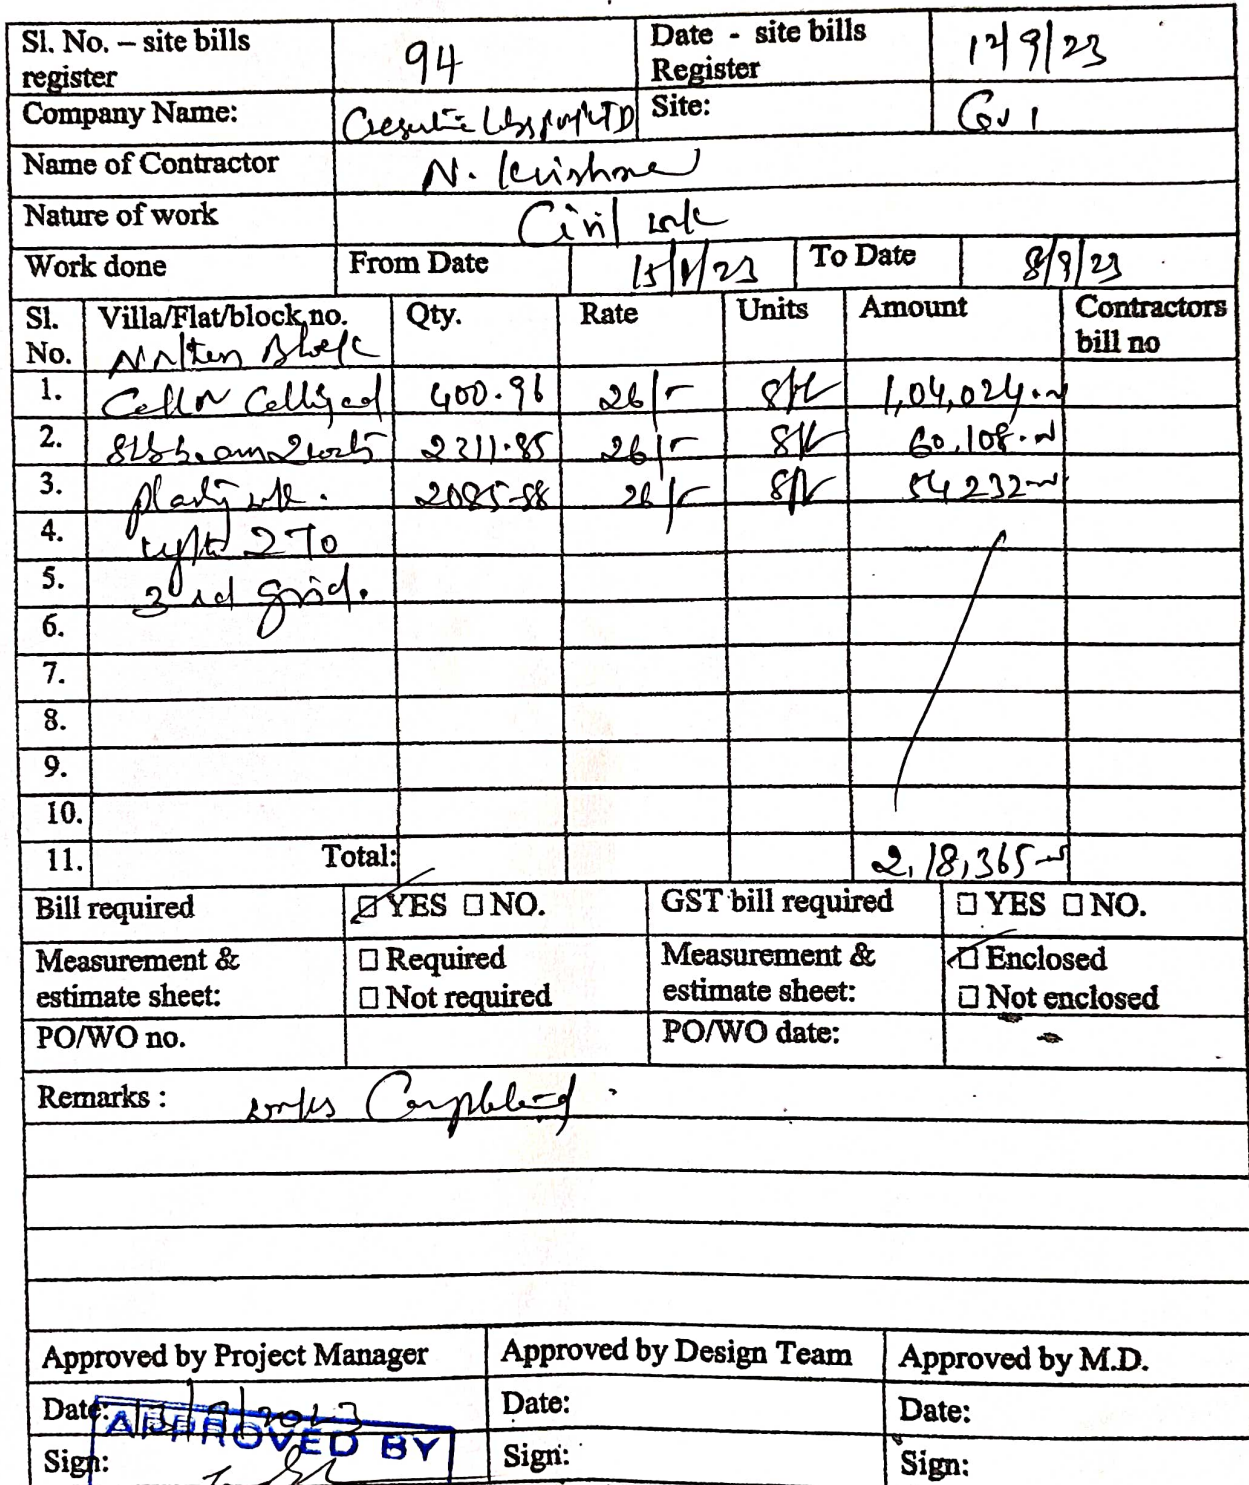 Sl. No. – site bills register 94 Date - site bills Register 12/9/23
Company Name: Site: GV 1
Name of Contractor N. Krishna
Nature of work Civil work
Work done From Date 15/8/23 To Date 8/9/23
Sl. No. Villa/Flat/block no. Qty. Rate Units Amount Contractors bill no
Block
1. 26/- 1,04,024
2. 2311.85 26/- 60,108
3. work. 2085-88 26/- 54,232
4. upto 2 To
5. 3rd grid.
6.
7.
8.
9.
10.
11. Total: 2,18,365
Bill required YES NO. GST bill required YES NO.
Measurement & estimate sheet: Required Not required Measurement & estimate sheet: Enclosed Not enclosed
PO/WO no. PO/WO date:
Remarks : works Completed
Approved by Project Manager Approved by Design Team Approved by M.D.
Date: 13/9/2023 Date: Date:
APPROVED BY
Sign: Sign: Sign: